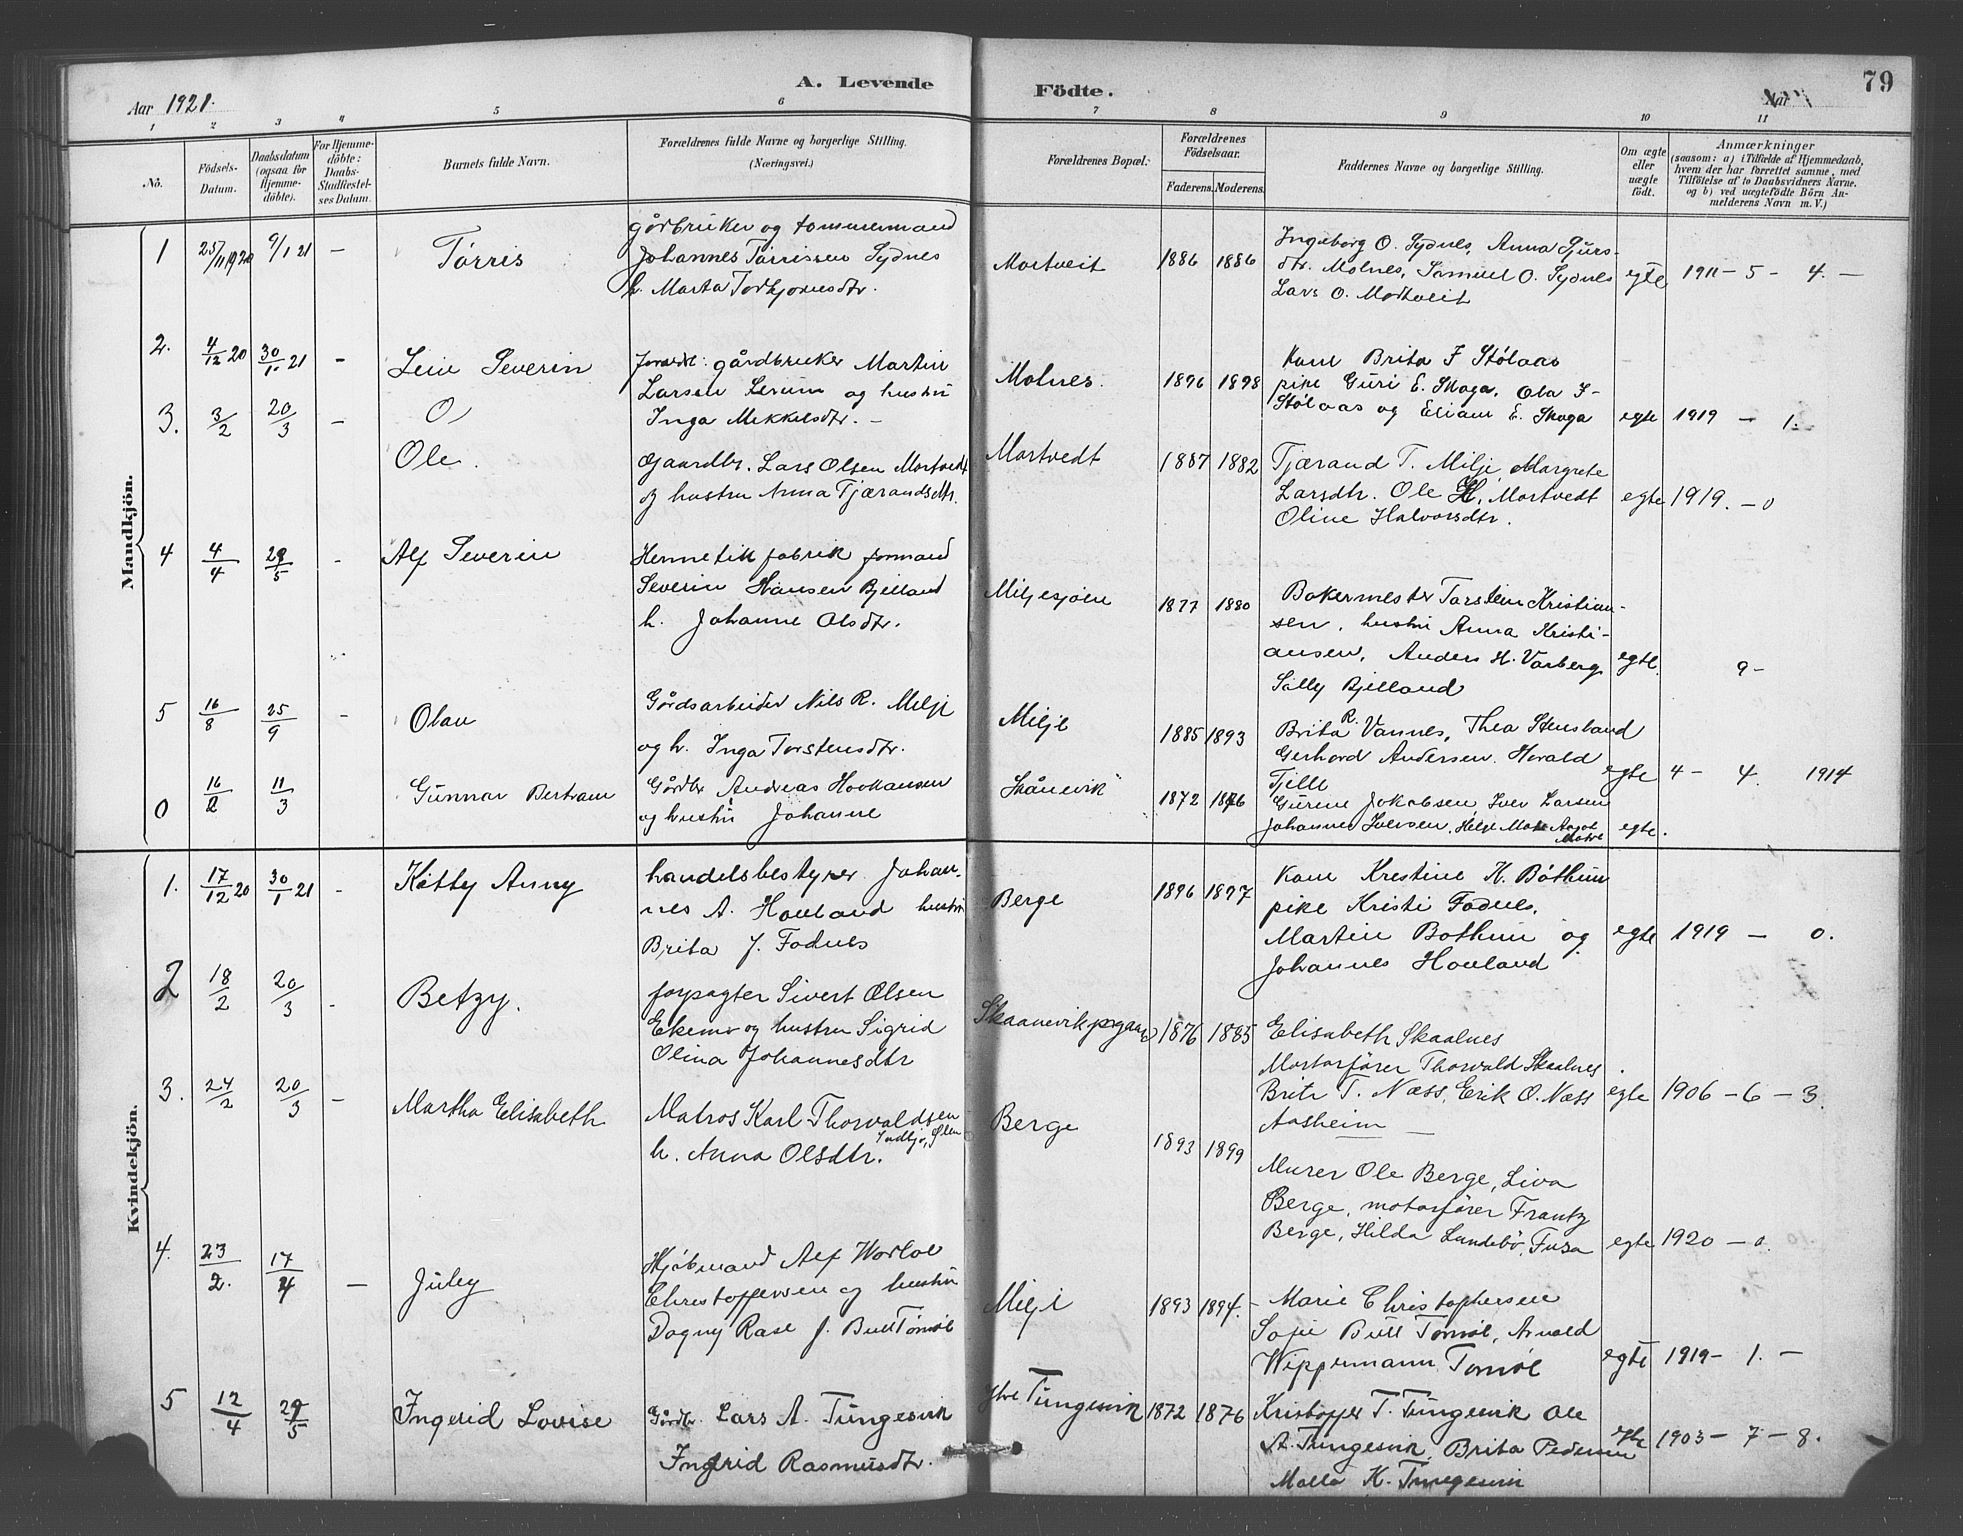 79
A. Levende Födte.
Aar 1921.
Aar
1 2 3 4 5 6 7 8 9 10 11
No.
Födsels-Datum.
Daabsdatum (ogsaa for Hjemme-döbte).
For Hjemme-döbte: Daabs-Stadfæstel-ses Datum.
Barnets fulde Navn.
Forældrenes fulde Navne og borgerlige Stilling. (Næringsvei.)
Forældrenes Bopæl.
Forældrenes Födselsaar.
Faderens. Moderens.
Faddernes Navne og borgerlige Stilling.
Om ægte eller uægte födt.
Anmærkninger
(saasom: a) i Tilfælde af Hjemmedaab, hvem der har forrettet samme, med Tilföielse af to Daabsvidners Navne. og b) ved uægtefödte Börn An-melderens Navn m. V.)
Mandkjön.
1 25/11 1920 9/1 21 — Tørris
gårbruker og tømmermand
Johannes Tørrissen Sydnes
h. Marta Torbjørnsdtr.
Mortveit 1886 1886
Ingeborg O. Sydnes, Anna Sjurs-
dtr. Molnes, Samuel O. Sydnes
Lars O. Mortveit
egte 1911 – 5 – 4. –
2. 4/12 20 30/1 21 – Leiv Severin
Forældr: gårdbruker Martin
Larsen Lerum og hustru
Inga Mikkelsdtr. –
Molnes. 1896 1898
Kone Brita F Stølaas
pike Guri E. Skoga, Ola F-
Stølaas og Eliam E. Skoga
egte 1919 – 1.
3. 3/2 20/3 – Ole.
Gaardbr. Lars Olsen Mortvedt
og hustru Anna Tjærandsdtr.
Mortvedt 1887 1882
Tjærand T. Milje, Margrete
Larsdtr. Ole H. Mortvedt
Oline Halvorsdtr.
egte 1919. – 0
4 4/4 29/5 - Alf Severin
Hermetikfabrik formand
Severin Hansen Bjelland
h. Johanne Olsdtr.
Miljesjøen 1877 1880
Bakermester Torstein Kristian-
sen, hustru Anna Kristi-
ansen, Anders H. Varberg
Sally Bjelland
egte. 9 -
5 16/8 25/9 - Olav
Gårdsarbeider Nils R. Milje
og h. Inga Torstensdtr.
Milje 1885 1893
Brita R. Vannes, Thea Stensland
Gerhard Andersen. Harald
Tjelle
egte 4 - 4. 1914
0 16/2 11/3 Gunnar Bertram
Gårdbr Andreas Haakansen
og hustru Johanne
Skånevik 1872 1876
Gurine Jakobsen, Iver Larsen
Johannes Iversen, Helge Matre
egte.
Kvindekjön.
1. 17/12 20 30/1 21 - Kåtty Anny
handelsbestyrer Johan-
nes A. Houland hustru
Brita J. Fadnes
Berge 1896 1897
Kone Krestine K. Bøthun
pike Kristi Fadnes,
Martin Bøthun og
Johannes Houland
egte 1919 – 0.
2 18/2 20/3 - Betzy.
forpagter Sivert Olsen
Ekemo og hustru Sigrid
Olina Johannesdtr
Skaanevik pgaard 1876 1885
Elisabeth Skaalnes
Motorfører Thorvald Skaalnes
Brite T. Næss, Erik O. Næss
Aasheim —
egte 1906 – 6 – 3.
3. 24/2 20/3 – Martha Elisabeth
Matros Karl Thorvaldsen
h. Anna Olsdtr.
Berge 1893 1899
Murer Ole Berge, Liva
Berge, motorfører Frantz
Berge, Hilda Lundebø, Fusa
egte 1920 – 0.
4. 23/2. 17/4 – Juley
Hjøbmand Alf Worloe
Christoffersen og hustru
Dagny Rase f. Bull Tornøe
Milje 1893 1894.
Marie Christophersen
Sofie Bull Tornøe, Arnold
Wippermann Tornøe
egte 1919 – 1. –
5 12/4 29/5 Ingerid Lovise
Gårdbr. Lars A. Tungesvik
Ingerid Rasmusdtr.
Tungesvik 1872 1876
Kristoffer T. Tungesvik Ole
A. Tungesvik, Brita Pedersen
Malla K. Tungesvik
egte 1903 – 7 – 8.